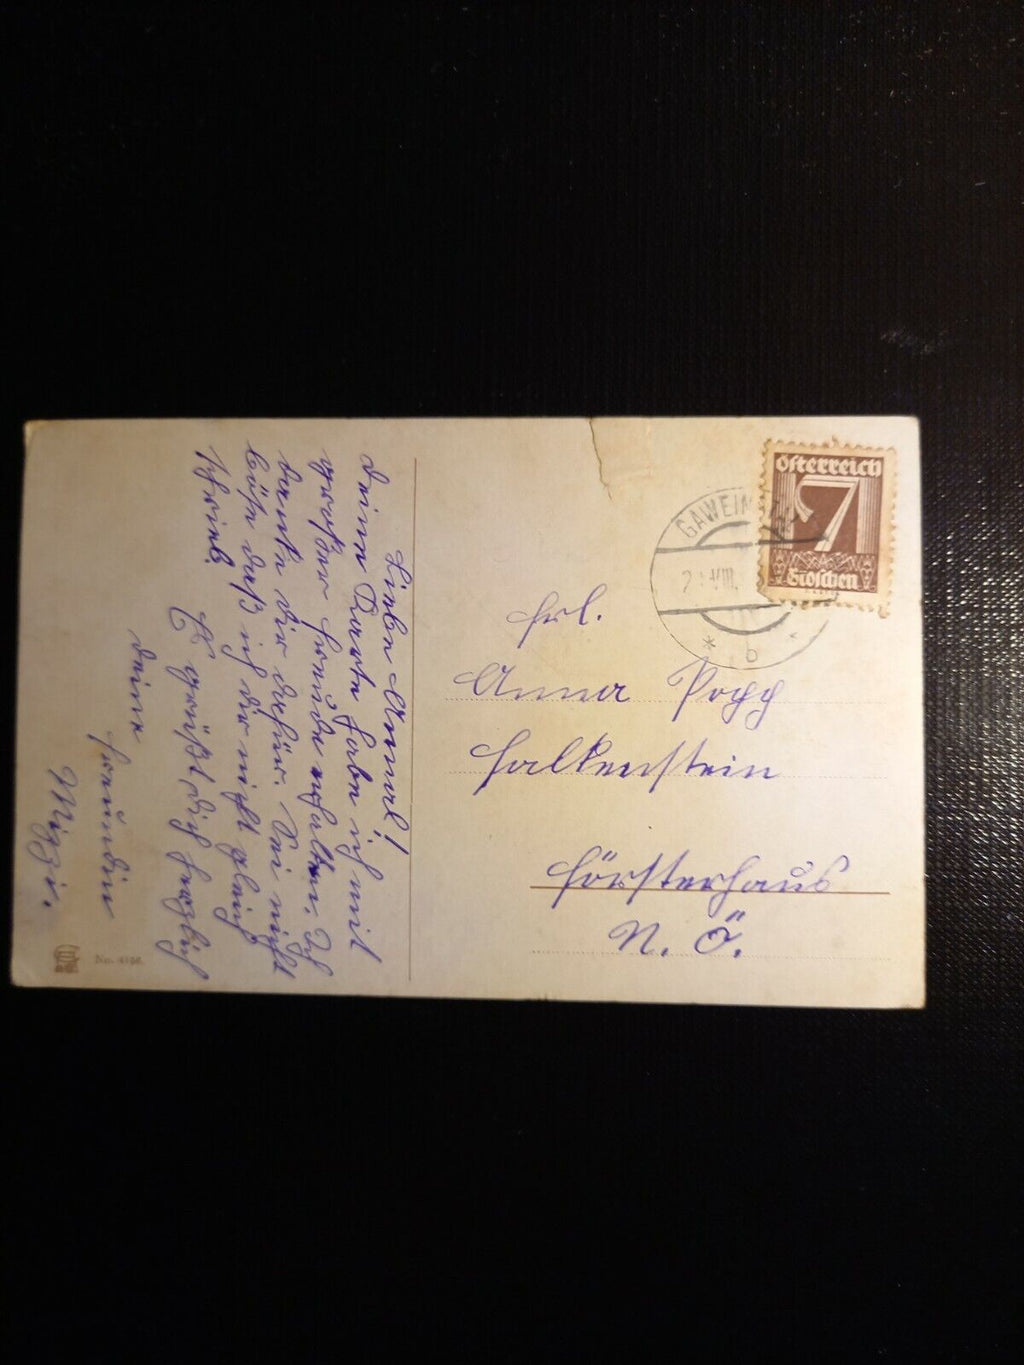 Liebe Annerl!
Deine Karte habe ich mit
großer Freude erhalten. Ich
danke dir dafür. Sei nicht
böse daß ich dir nicht gleich
schrieb.
Es grüßt dich herzlich
deine
Freundin
Mizzi.
No. 4146.
Österreich
7
Groschen
GAWEIN
VIII.
* b *
Frl.
Anna Popp
Falkenstein
Försterhaus
N. Ö.